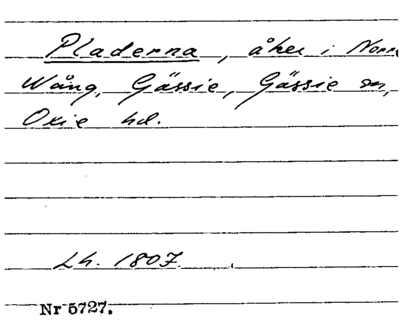 Pladerna, åker i Norra
Wång, Gässie, Gässie sn,
Oxie hd.
Lh. 1807.
Nr 5727.